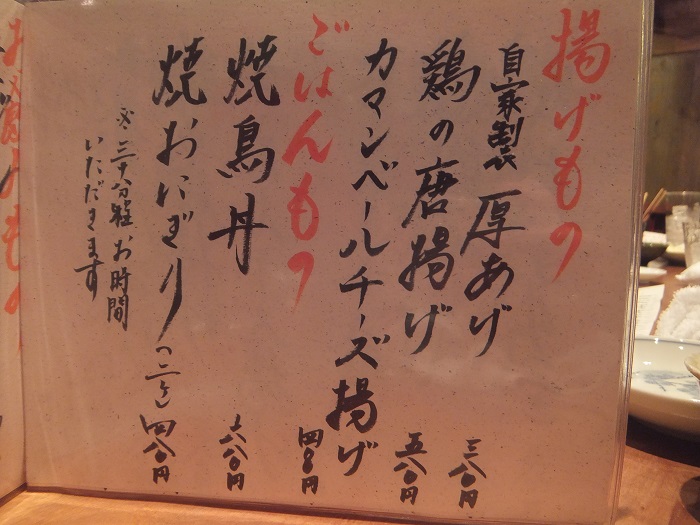 揚げもの
自家製 厚あげ 三八〇円
鶏の唐揚げ 五八〇円
カマンベールチーズ揚げ 四八〇円
ごはんもの
焼鳥丼 六八〇円
焼おにぎり(二ヶ) 四八〇円
※三十分程お時間
いただきます